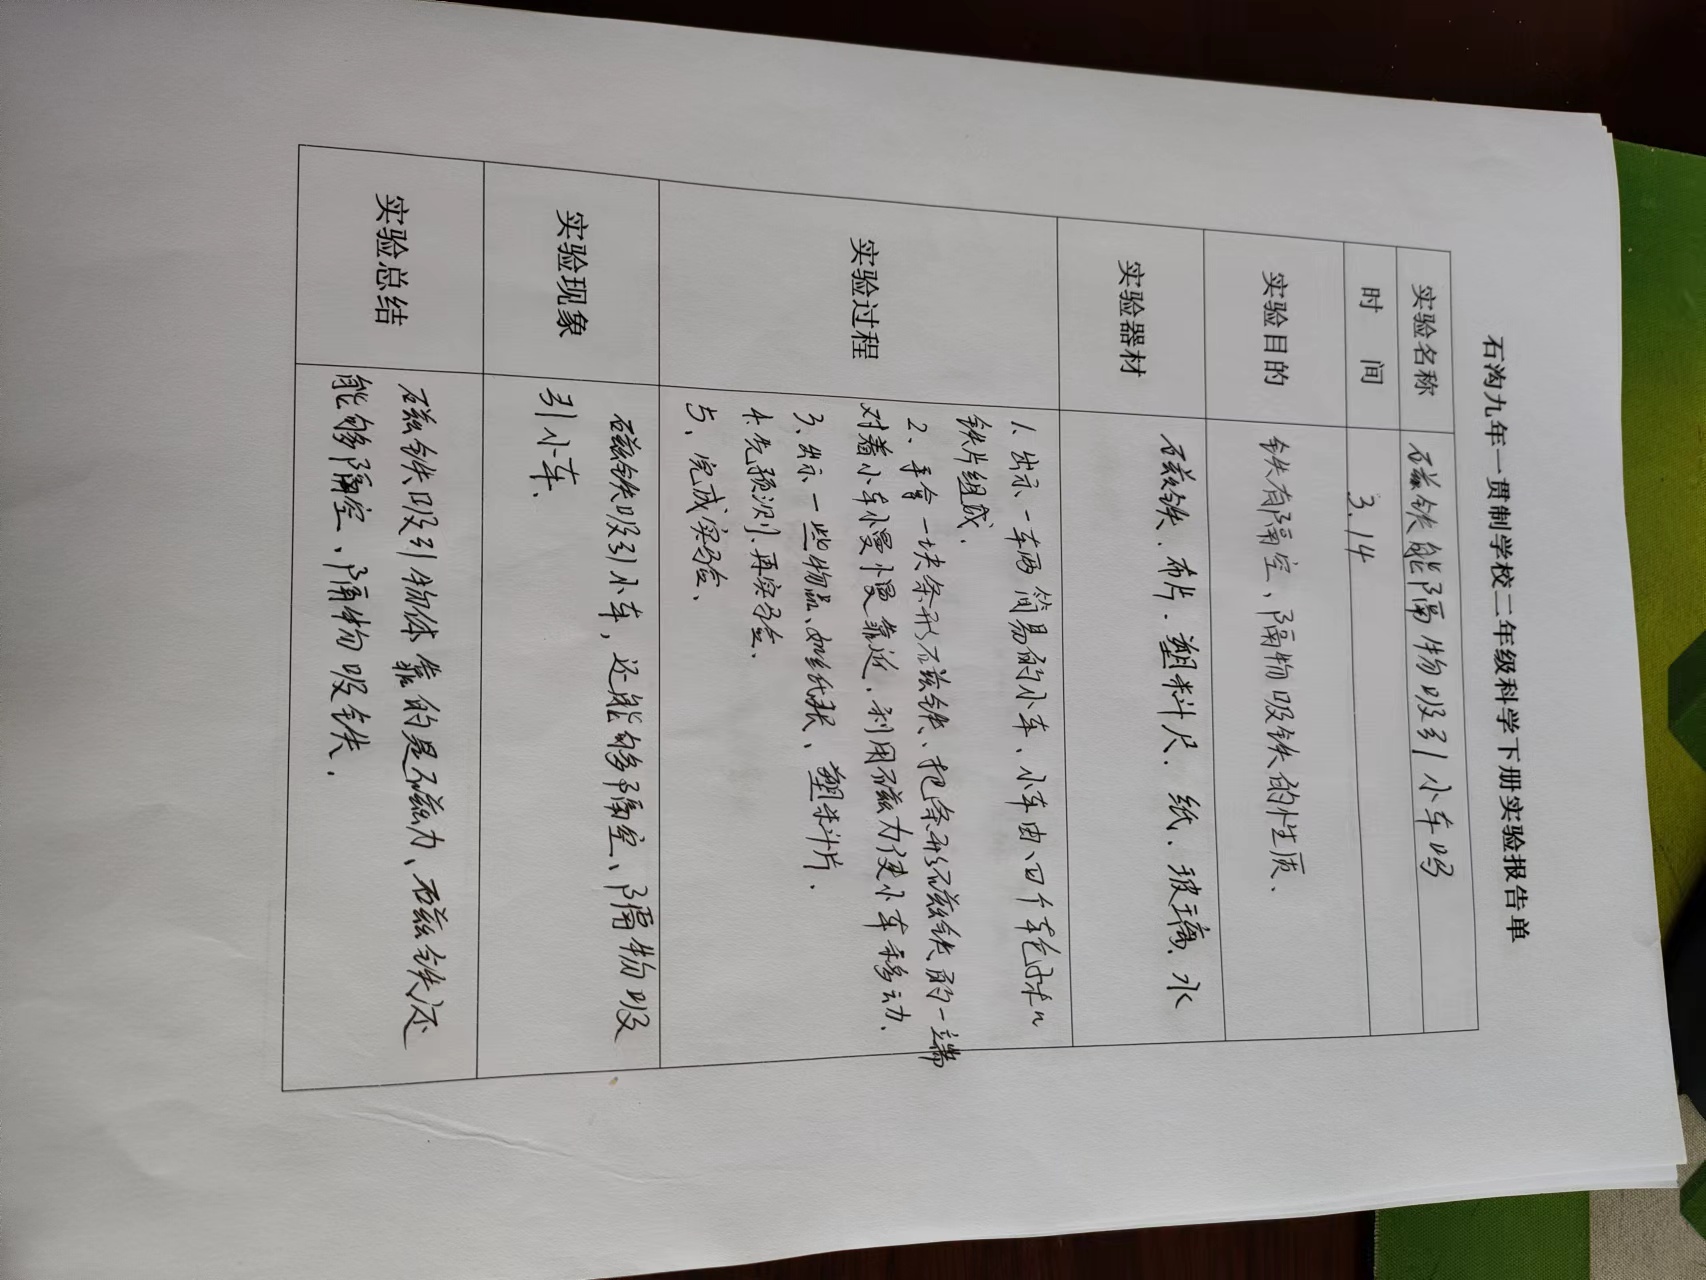 石沟九年一贯制学校二年级科学下册实验报告单
实验名称 磁铁能隔物吸引小车吗
时 间 3.14
实验目的 铁有隔空、隔物吸铁的性质、
实验器材 磁铁、布片、塑料尺、纸、玻璃、水
实验过程
1、出示一车两简易的小车、小车由、四个轮子和
铁片组成、
2、手拿一块条形磁铁、把条形磁铁的一端
对着小车慢慢靠近、利用磁力使小车移动、
3、出示一些物品、如纸张、塑料片、
4、先预测、再实验、
5、完成实验、
实验现象
磁铁吸引小车，还能够隔空、隔物吸
引小车、
实验总结
磁铁吸引物体靠的是磁力、磁铁还
能够隔空、隔物吸铁、